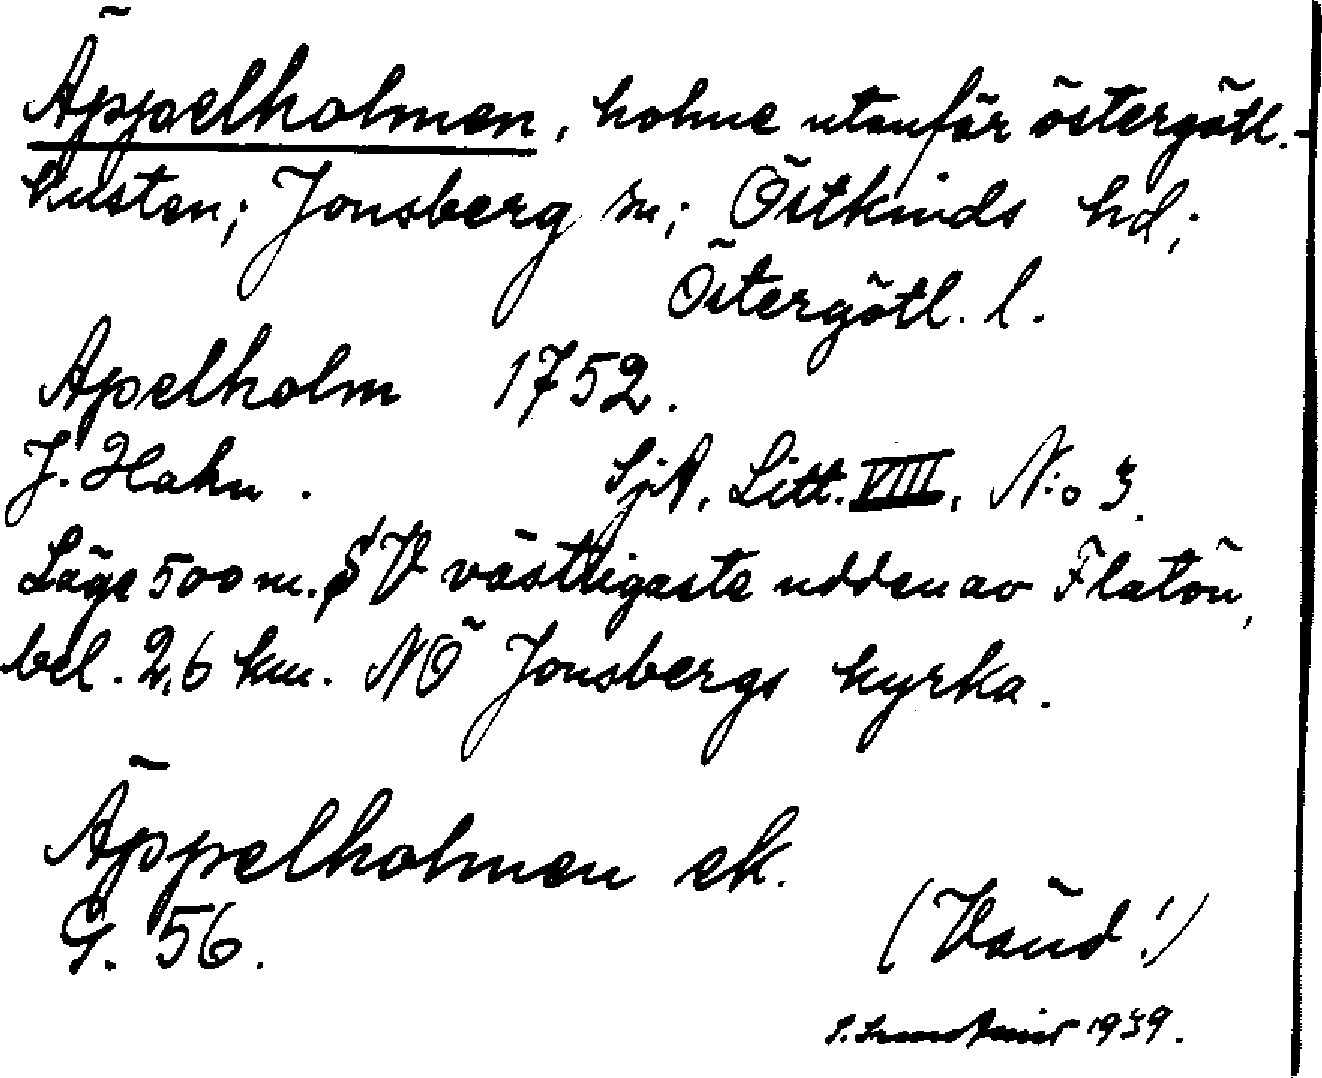 Äppelholmen, holme utanför östergötl.-
kusten; Jonsberg sn; Östkinds hd;
Östergötl. l.
Apelholm 1752.
J. Hahn. SjA. Litt. VIII, N:o 3.
Läge 500 m. SV västligaste udden av Flatön,
bel. 2,6 km. NÖ Jonsbergs kyrka.
Äppelholmen ek.
G. 56.
(Vänd!)
1939.